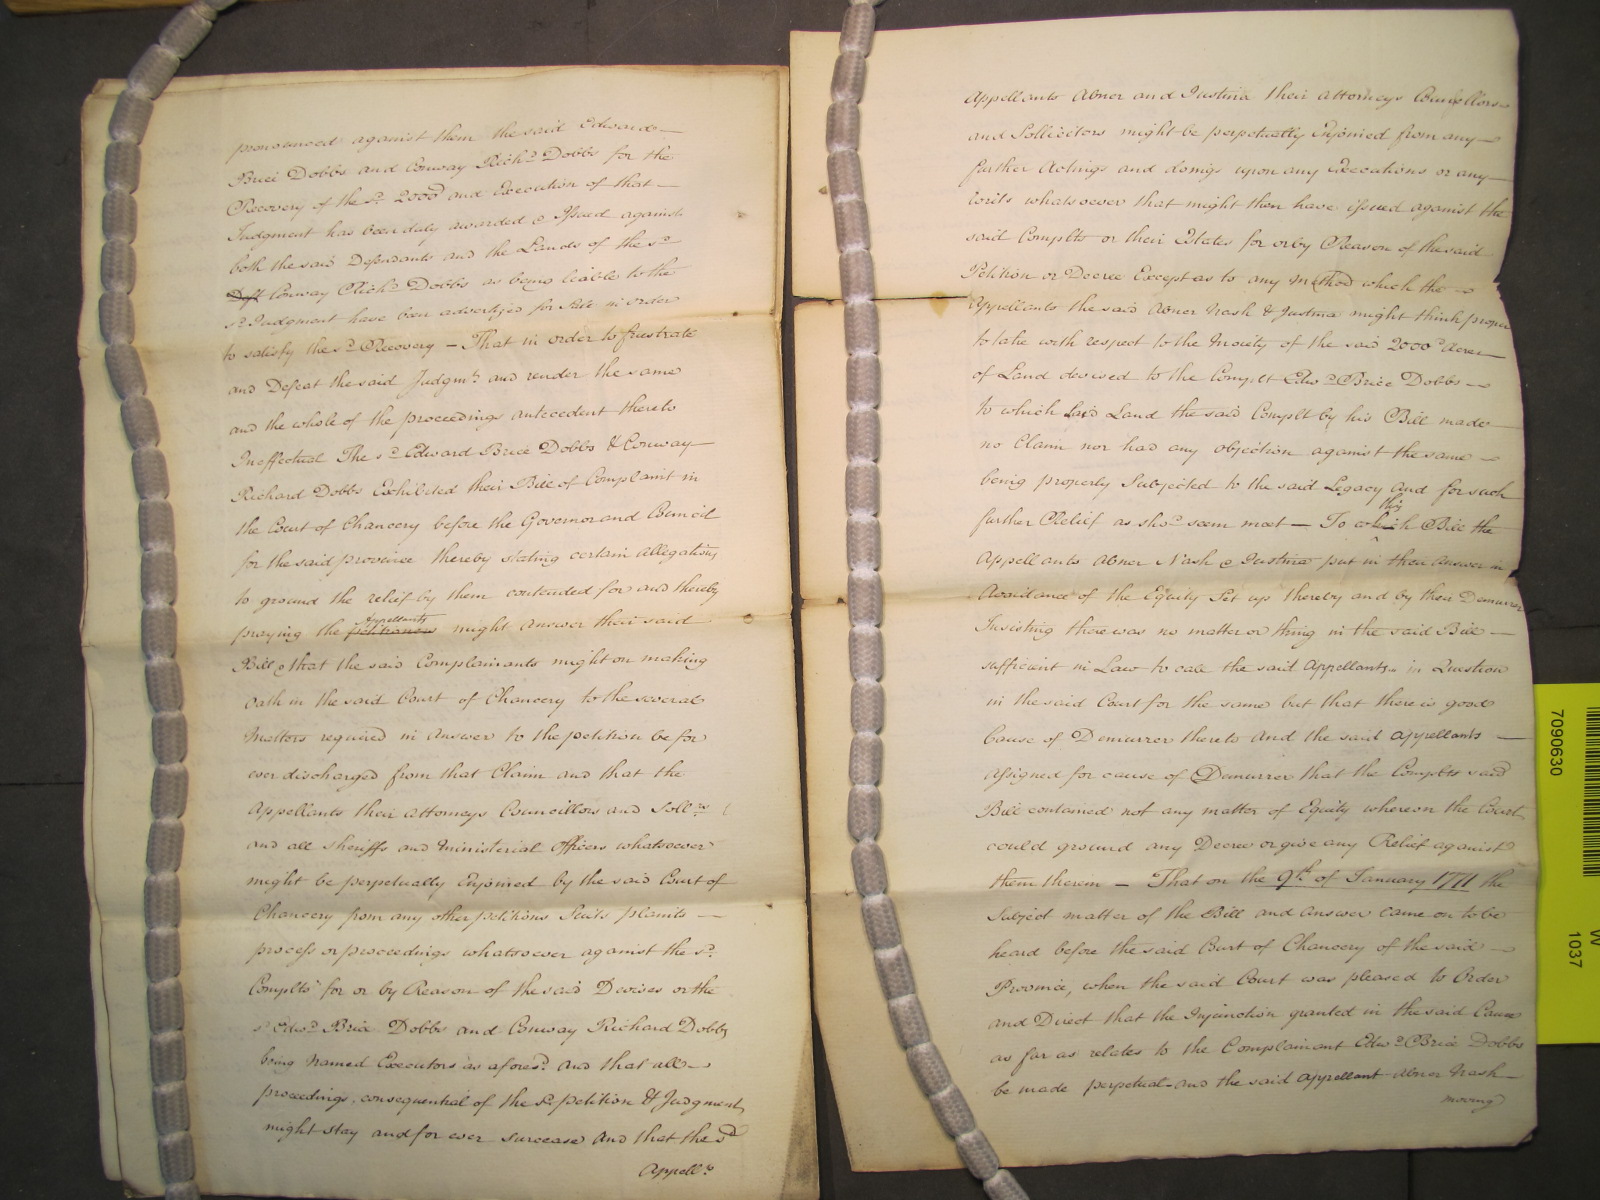 pronounced against them the said Edward
Brice Dobbs and Conway Richd Dobbs for the
Recovery of the sd 2000 and Execution of that
Judgment has been duly awarded & Issued against
both the said Defendants and the Lands of the sd
Deft Conway Richd Dobbs as being liable to the
sd Judgment have been advertized for Sale in order
to satisfy the sd Recovery - That in order to frustrate
and Defeat the said Judgmt and render the same
and the whole of the proceedings antecedent thereto
Ineffectual The sd Edward Brice Dobbs & Conway
Richard Dobbs Exhibited their Bill of Complaint in
the Court of Chancery before the Governor and Council
for the said province thereby stating certain allegations
to ground the relief by them contended for and thereby
praying the petitioners Appellants might answer their said
Bill & that the said Complainants might on making
Oath in the said Court of Chancery to the several
Matters required in answer to the petition be for
ever discharged from that Claim and that the
Appellants their attorneys Councillors and Sollrs
and all Sheriffs and Ministerial Officers whatsoever
might be perpetually Enjoined by the said Court of
Chancery from any other petitions Suits plaints
process or proceedings whatsoever against the sd
Complts for or by Reason of the said Devises or the
sd Edwd Brice Dobbs and Conway Richard Dobbs
being Named Executors as aforesd And that all
proceedings, consequential of the sd petition & Judgment
might stay and for ever surcease And that the sd
Appellts
Appellants Abner and Justina their Attorneys Councellors
and Sollicitors might be perpetually Enjoined from any
further Actings and doings upon any Executions or any
Writs whatsoever that might then have issued against the
said Complts or their Estates for or by Reason of the said
Petition or Decree Except as to any Method which the
Appellants the said Abner Nash & Justina might think proper
to take with respect to the Moiety of the said 2000 Acres
of Land devised to the Complt Edwd Brice Dobbs
to which said Land the said Complt by his Bill made
no Claim nor had any objection against the same
being properly Subjected to the said Legacy And for such
further Relief as shod seem meet - To which this Bill the
Appellants Abner Nash & Justina put in their Answer in
Avoidance of the Equity Set up thereby and by their Demurrer
Insisting there was no matter or thing in the said Bill
sufficient in Law to call the said Appellants in Question
in the said Court for the same but that there is good
Cause of Demurrer thereto And the said Appellants
Assigned for cause of Demurrer that the Complts said
Bill contained not any matter of Equity whereon the Court
could ground any Decree or give any Relief against
them therein - That on the 9th of January 1771 the
Subject matter of the Bill and Answer came on to be
heard before the said Court of Chancery of the said
Province, when the said Court was pleased to Order
and Direct that the Injunction granted in the said Cause
as far as relates to the Complainant Edwd Brice Dobbs
be made perpetual and the said Appellant Abner Nash
moving
7090630
W
1037